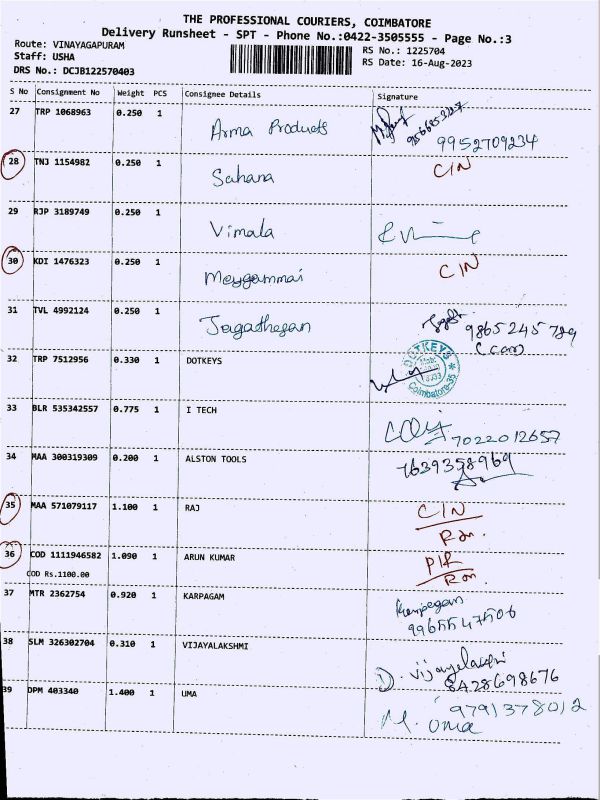 THE PROFESSIONAL COURIERS, COIMBATORE
Delivery Runsheet - SPT - Phone No.:0422-3505555 - Page No.:3
Route: VINAYAGAPURAM
RS No.: 1225704
Staff: USHA
RS Date: 16-Aug-2023
DRS No.: DCJB122570403
S No Consignment No Weight PCS Consignee Details Signature
27 TRP 1068963 0.250 1 Arma Products 9952709234
28 TNJ 1154982 0.250 1 Sahana CIN
29 RJP 3189749 0.250 1 Vimala
30 KDI 1476323 0.250 1 Meygammai CIN
31 TVL 4992124 0.250 1 Jagathesan 9865245789
32 TRP 7512956 0.330 1 DOTKEYS DOTKEYS Coimbatore-35
33 BLR 535342557 0.775 1 I TECH 7022012657
34 MAA 300319309 0.200 1 ALSTON TOOLS 7639358969
35 MAA 571079117 1.100 1 RAJ CIN
36 COD 1111946582 1.090 1 ARUN KUMAR
COD Rs.1100.00
37 MTR 2362754 0.920 1 KARPAGAM
9965547506
38 SLM 326302704 0.310 1 VIJAYALAKSHMI
8428698676
39 DPM 403340 1.400 1 UMA 9791378012
M. Uma